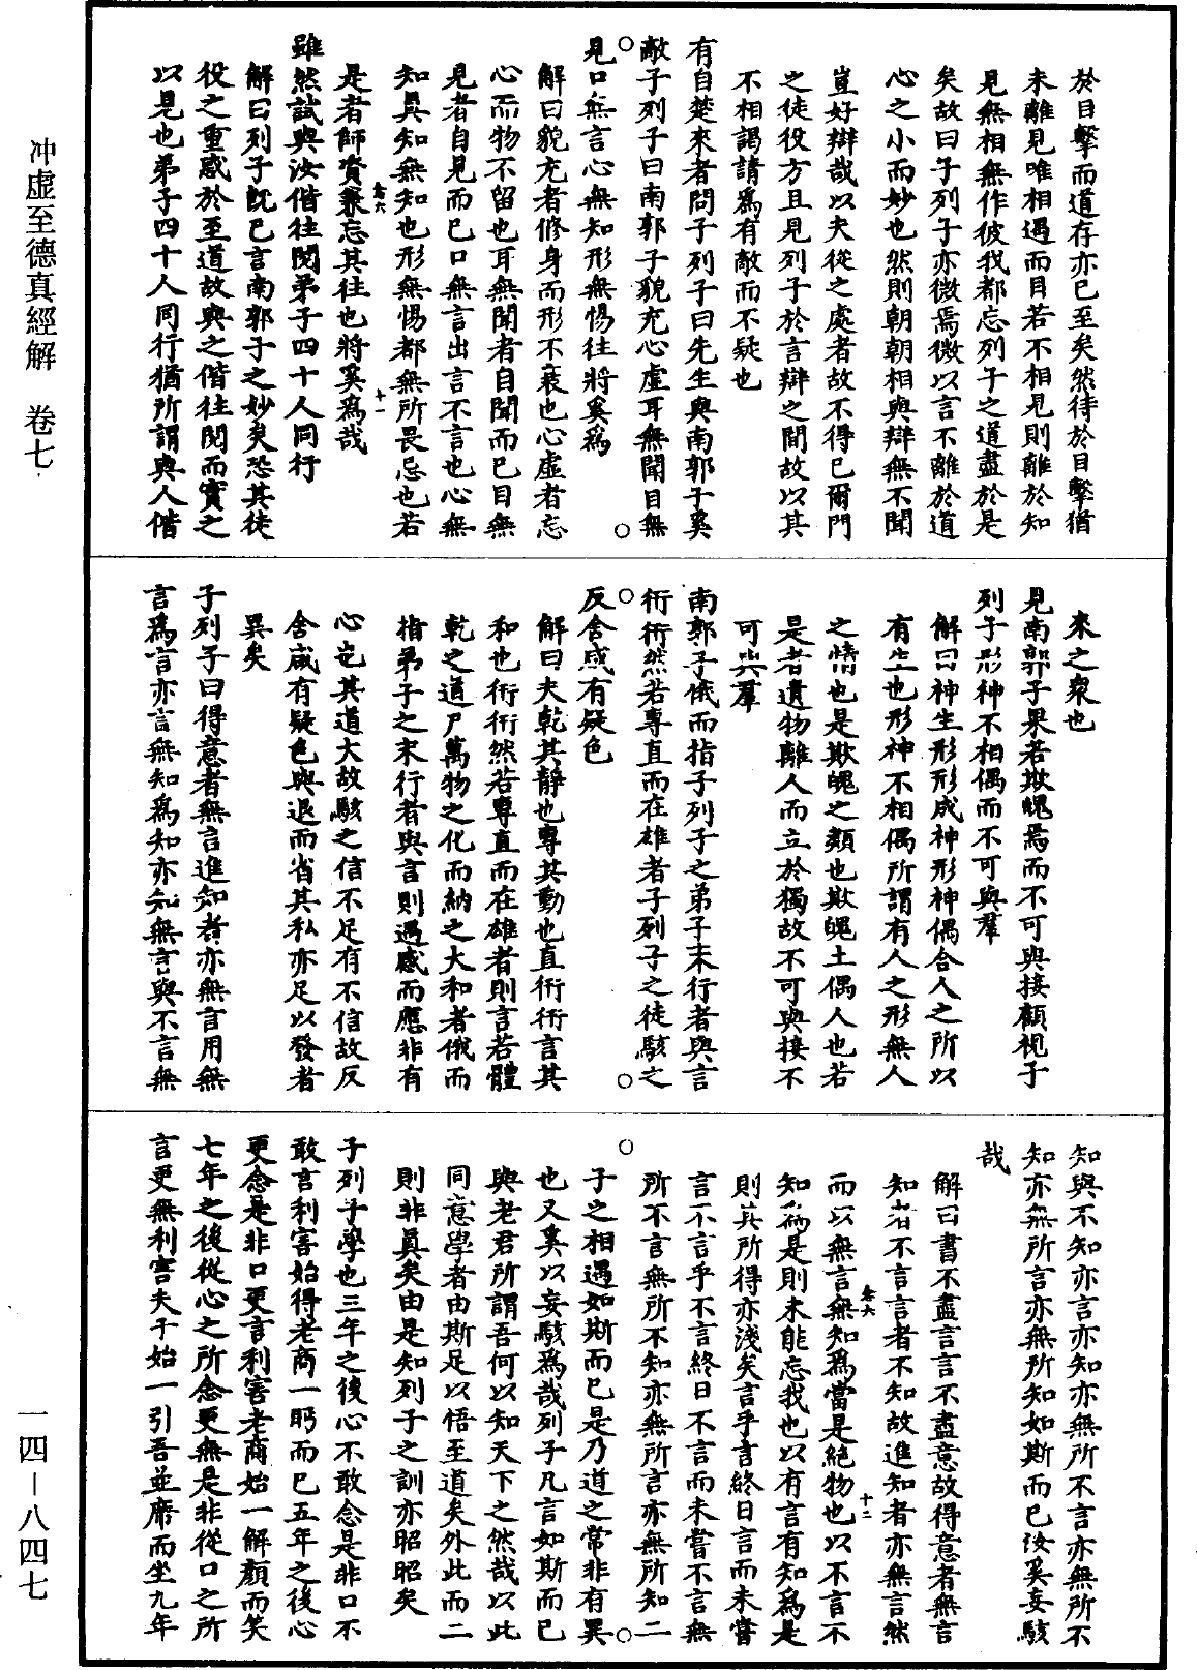 於目擊而道存亦已至矣然待於目擊猶
未離見唯相遇而目若不相見則離於知
見無相無作彼我都忘列子之道盡於是
矣故曰子列子亦微焉微以言不離於道
心之小而妙也然則朝朝相與辯無不聞
豈好辯哉以夫從之處者故不得已爾門
之徒役方且見列子於言辯之間故以其
不相謁請爲有敵而不疑也
有自楚來者問子列子曰先生與南郭子奚
敵子列子曰南郭子貌充心虛耳無聞目無
見口無言心無知形無惕往將奚爲
解曰貌充者修身而形不衰也心虛者忘
心而物不留也耳無聞者自聞而已目無
見者自見而已口無言出言不言也心無
知真知無知也形無惕都無所畏忌也若
是者師資兼忘其往也將奚爲哉
雖然試與汝偕往閱弟子四十人同行
解曰列子既已言南郭子之妙矣恐其徒
役之重惑於至道故與之偕往閱而實之
以見也弟子四十人同行猶所謂與人偕
來之衆也
見南郭子果若欺魄焉而不可與接顧視子
列子形神不相偶而不可與羣
解曰神生形形成神形神偶合人之所以
有生也形神不相偶所謂有人之形無人
之情也是欺魄之類也欺魄土偶人也若
是者遺物離人而立於獨故不可與接不
可與羣
南郭子俄而指子列子之弟子末行者與言
衎衎然若專直而在雄者子列子之徒駭之
反舍咸有疑色
解曰夫乾其靜也專其動也直衎衎言其
和也衎衎然若專直而在雄者則言若體
乾之道尸萬物之化而納之大和者俄而
指弟子之末行者與言則遇感而應非有
心也其道大故駭之信不足有不信故反
舍咸有疑色與退而省其私亦足以發者
異矣
子列子曰得意者無言進知者亦無言用無
言爲言亦言無知爲知亦知無言與不言無
知與不知亦言亦知亦無所不言亦無所不
知亦無所言亦無所知如斯而已汝奚妄駭
哉
解曰書不盡言言不盡意故得意者無言
知者不言言者不知故進知者亦無言然
而以無言無知爲當是絕物也以不言不
知爲是則未能忘我也以有言有知爲是
則其所得亦淺矣言乎言終日言而未嘗
言不言乎不言終日不言而未嘗不言無
所不言無所不知亦無所言亦無所知二
子之相遇如斯而已是乃道之常非有異
也又奚以妄駭爲哉列子凡言如斯而已
與老君所謂吾何以知天下之然哉以此
同意學者由斯足以悟至道矣外此而二
則非真矣由是知列子之訓亦昭昭矣
子列子學也三年之後心不敢念是非口不
敢言利害始得老商一眄而已五年之後心
更念是非口更言利害老商始一解顏而笑
七年之後從心之所念更無是非從口之所
言更無利害夫子始一引吾並席而坐九年
卷六
十一
卷六
十二
冲虛至德真經解　卷七
一四—八四七